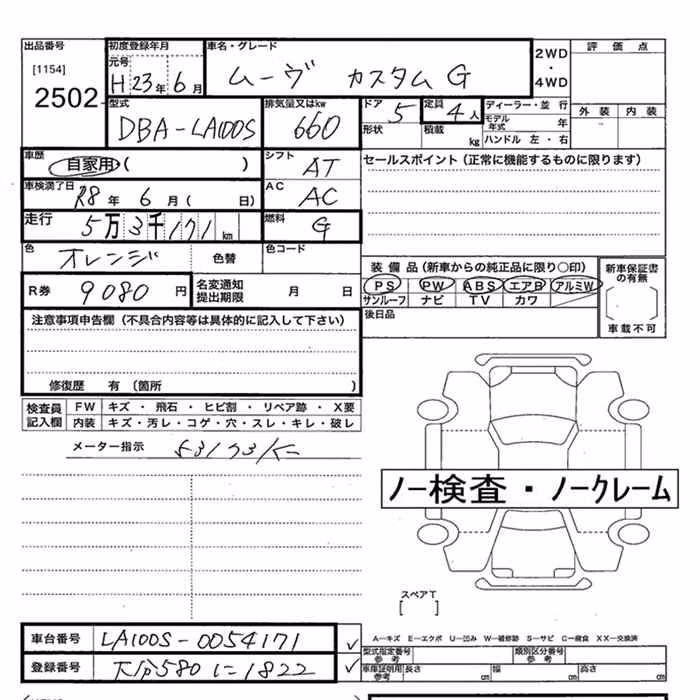 出品番号 初度登録年月 車名・グレード 2WD ・ 4WD 評価点
[1154] 元号 H 23年 6月 ムーヴ カスタム G
2502 外装 内装
型式 DBA-LA100S 排気量又はkw 660 ドア 5 定員 4人 ディーラー・並行
形状 積載 kg モデル年式 年
ハンドル 左・右
車歴 自家用( ) シフト AT セールスポイント(正常に機能するものに限ります)
車検満了日 R8年 6月( 日) AC AC
走行 5万3千171km 燃料 G
色 オレンジ 色替 色コード
装備品(新車からの純正品に限り〇印) 新車保証書の有無
R券 9080円 名変通知提出期限 月 日 PS PW ABS エアB アルミW
サンルーフ ナビ TV カワ
後日品 車載不可
注意事項申告欄(不具合内容等は具体的に記入して下さい)
修復歴 有〔箇所 )
検査員記入欄 FW キズ・飛石・ヒビ割・リペア跡・X要
内装 キズ・汚レ・コゲ・穴・スレ・キレ・破レ
メーター指示
ノー検査・ノークレーム
スペアT
[ ]
車台番号 LA100S-0054171 ✓
登録番号 大分580 に1822 ✓
A-キズ E-エクボ U-凹み W-補修跡 S-サビ C-腐食 XX-交換済
型式指定番号 参考 類別区分番号 参考
車庫証明用 参考 長さ cm 幅 cm 高さ cm